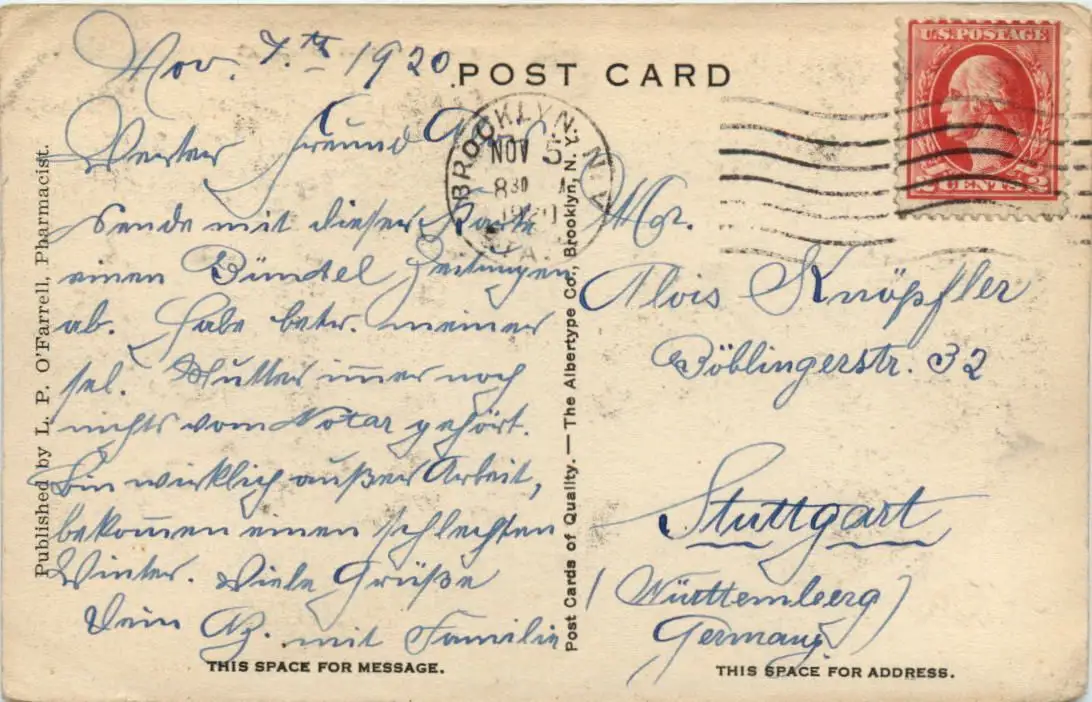 Nov. 7.th 1920
POST CARD
U.S. POSTAGE
2 CENTS 2
BROOKLYN, N.Y.
NOV 5
8 30
1920
Werter Freund
Sende mit dieser Karte
einen Bündel Zeitungen
ab. Habe betr. meiner
sel. Mutter immer noch
nichts vom Notar gehört.
Bin wirklich außer Arbeit,
bekommen einen schlechten
Winter. Viele Grüße
Dein mit Familie
THIS SPACE FOR MESSAGE.
Published by L. P. O'Farrell, Pharmacist.
Post Cards of Quality. — The Albertype Co., Brooklyn, N. Y.
Mr.
Alois Knöpfler
Böblingerstr. 32
Stuttgart
(Württemberg)
Germany
THIS SPACE FOR ADDRESS.